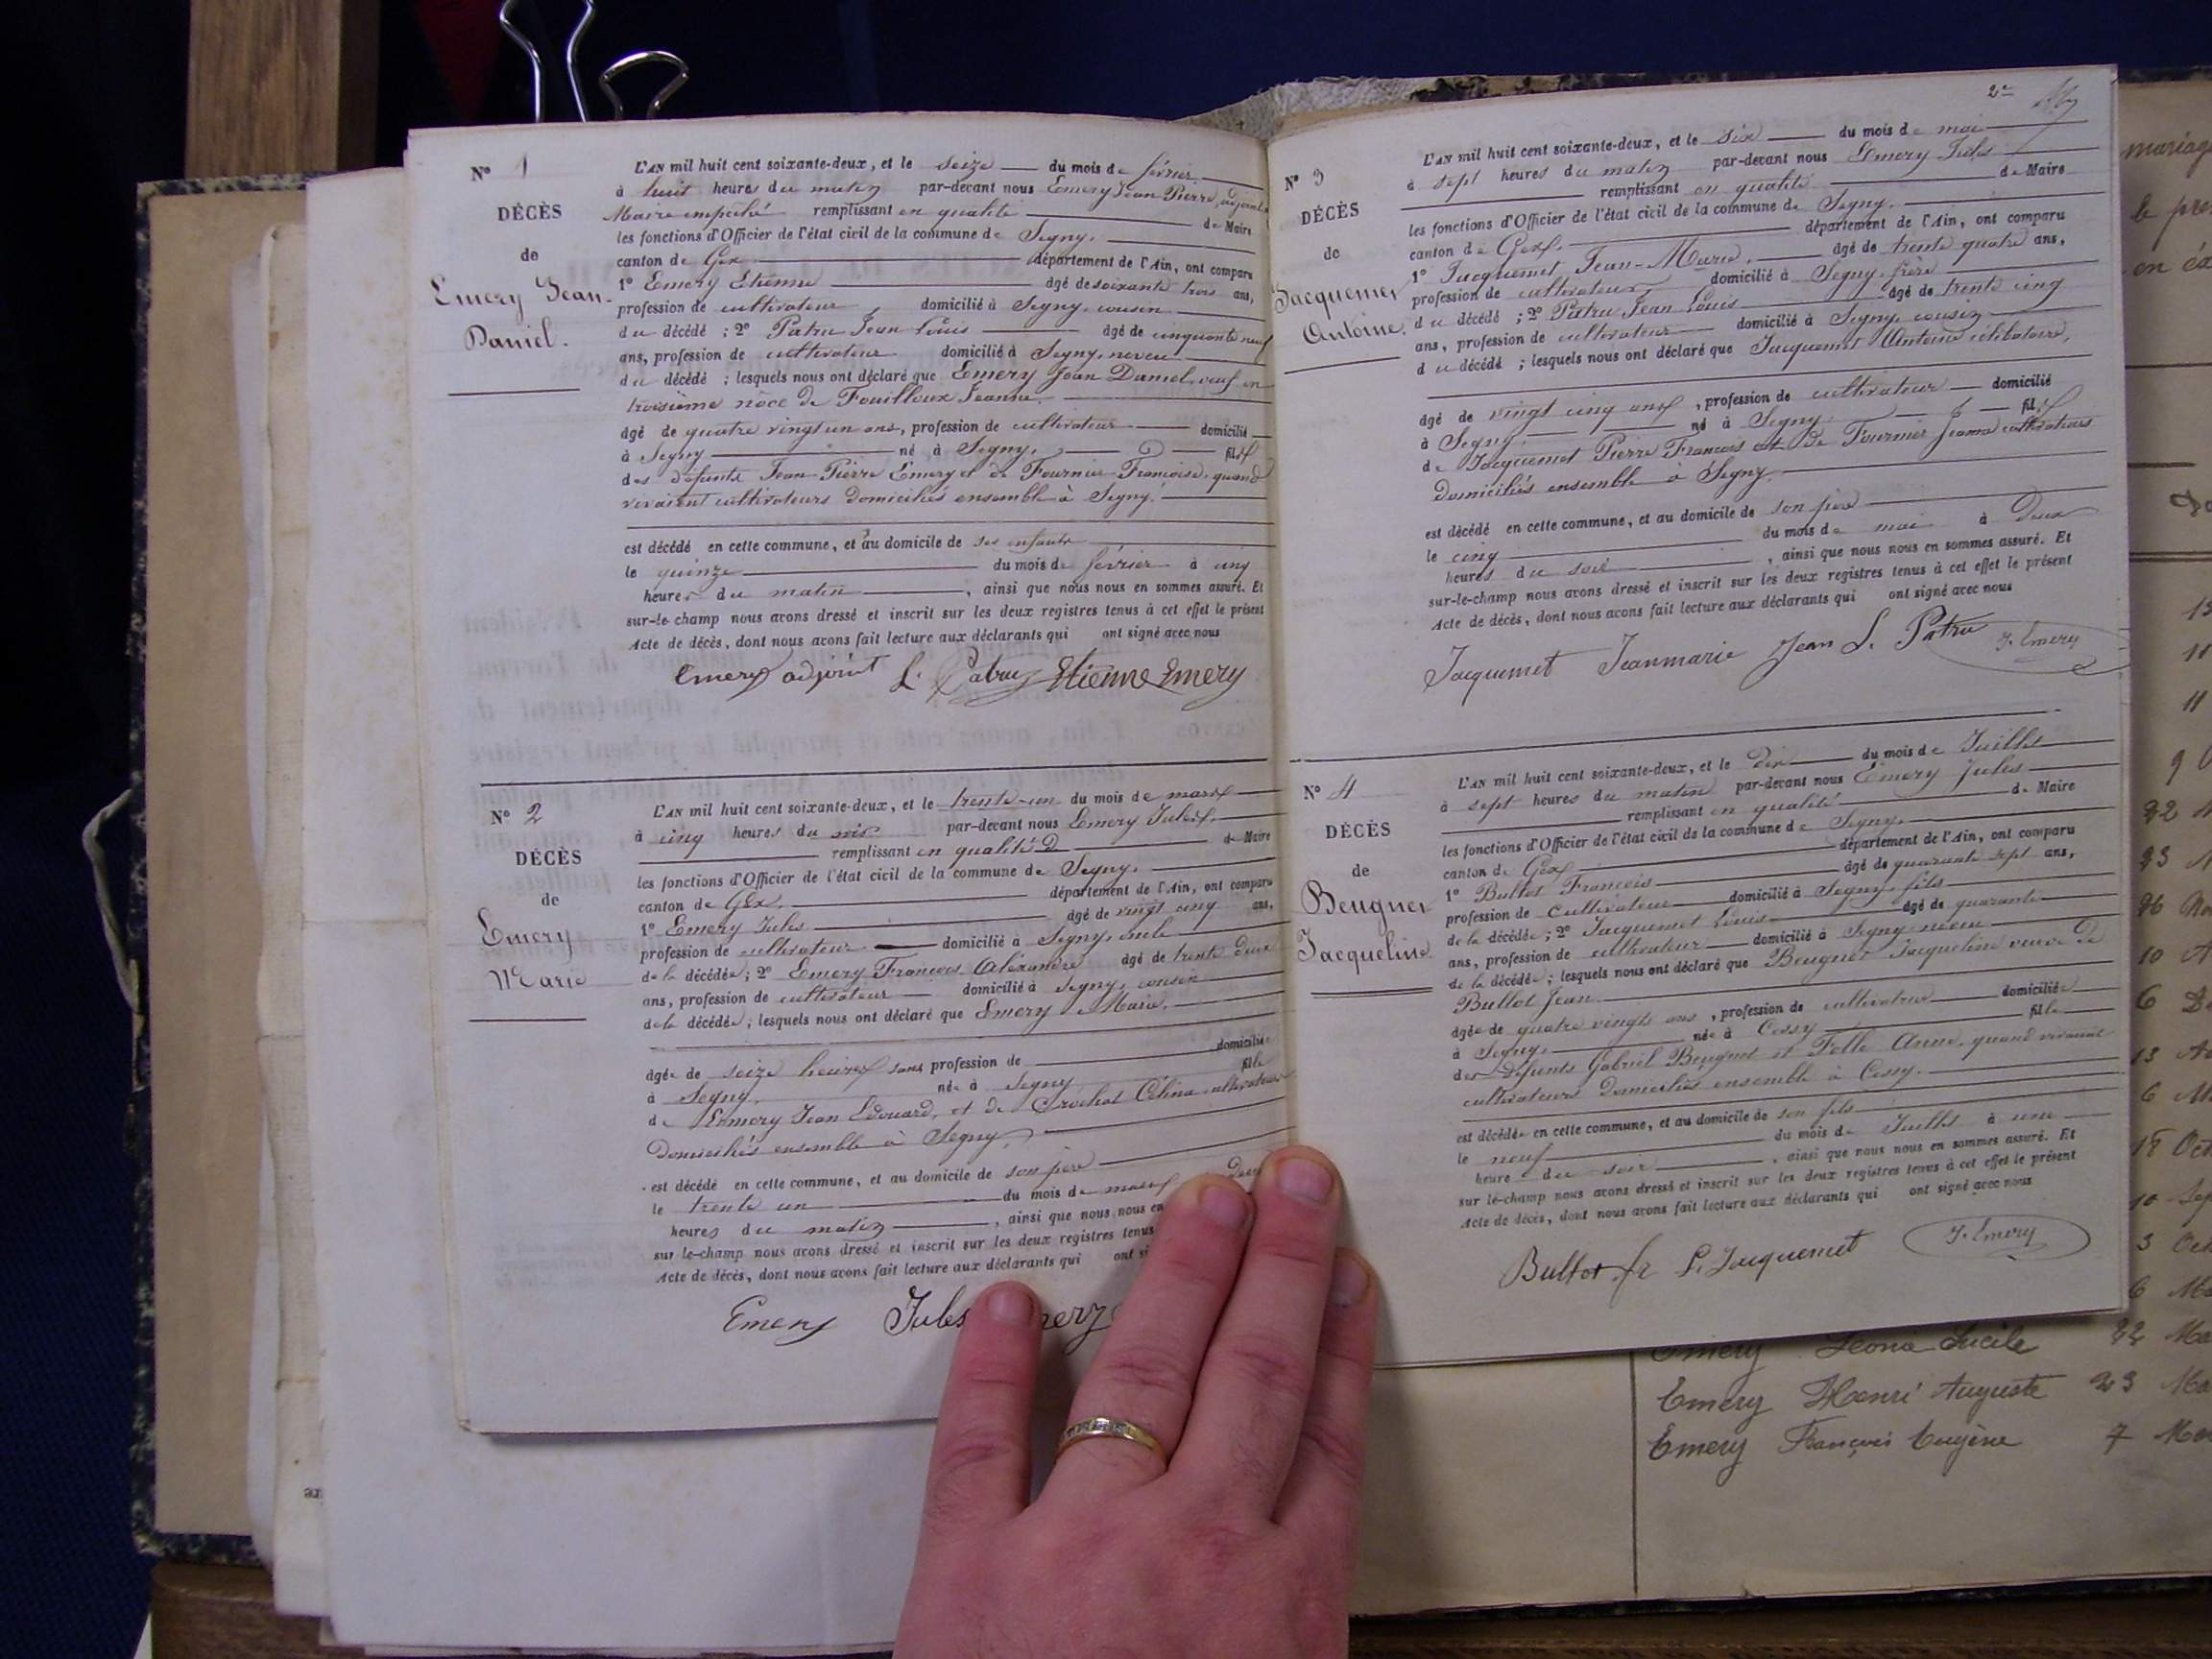 N° 1
DÉCÈS
de
Emery Jean
Daniel.
L'AN mil huit cent soixante-deux, et le seize du mois de février
à huit heures du matin par-devant nous Emery Jean Pierre, adjoint
Maire empêché remplissant en qualité de Maire
les fonctions d'Officier de l'état civil de la commune de Segny.
canton de Gex département de l'Ain, ont comparu
1° Emery Etienne âgé de soixante trois ans,
profession de cultivateur domicilié à Segny, cousin
du décédé ; 2° Patru Jean Louis âgé de cinquante neuf
ans, profession de cultivateur domicilié à Segny, neveu
du décédé ; lesquels nous ont déclaré que Emery Jean Daniel, veuf en
troisième noce de Fouilloux Jeanne.
âgé de quatre vingt un ans, profession de cultivateur domicilié
à Segny né à Segny, fils
des défunts Jean-Pierre Emery et de Fournier Françoise, quand
vivaient cultivateurs domiciliés ensemble à Segny.
est décédé en cette commune, et au domicile de ses enfants
le quinze du mois de février à cinq
heures du matin, ainsi que nous nous en sommes assuré. Et
sur-le-champ nous avons dressé et inscrit sur les deux registres tenus à cet effet le présent
Acte de décès, dont nous avons fait lecture aux déclarants qui ont signé avec nous
Emery adjoint L. Patru Etienne Emery
N° 2
DÉCÈS
de
Emery
Marie
L'AN mil huit cent soixante-deux, et le trente-un du mois de mars
à cinq heures du soir par-devant nous Emery Jules
remplissant en qualité de Maire
les fonctions d'Officier de l'état civil de la commune de Segny.
canton de Gex. département de l'Ain, ont comparu
1° Emery Jules âgé de vingt cinq ans,
profession de cultivateur domicilié à Segny, oncle
de la décédée ; 2° Emery François Alexandre âgé de trente deux
ans, profession de cultivateur domicilié à Segny, cousin
de la décédée ; lesquels nous ont déclaré que Emery Marie.
âgée de seize heures sans profession de domiciliée
à Segny. née à Segny fille
de Emery Jean Edouard, et de Crochat Célina cultivateurs
domiciliés ensemble à Segny.
est décédé en cette commune, et au domicile de son père
le trente un du mois de mars deux
heures du matin, ainsi que nous nous en
sur-le-champ nous avons dressé et inscrit sur les deux registres tenus
Acte de décès, dont nous avons fait lecture aux déclarants qui ont
Emery Jules
2e
N° 3
DÉCÈS
de
Jacquemet
Antoine.
L'AN mil huit cent soixante-deux, et le six du mois de mai
à sept heures du matin par-devant nous Emery Jules
remplissant en qualité de Maire
les fonctions d'Officier de l'état civil de la commune de Segny.
canton de Gex. département de l'Ain, ont comparu
1° Jacquemet Jean-Marie. âgé de trente quatre ans,
profession de cultivateur domicilié à Segny, frère
du décédé ; 2° Patru Jean Louis âgé de trente cinq
ans, profession de cultivateur domicilié à Segny, cousin
du décédé ; lesquels nous ont déclaré que Jacquemet Antoine célibataire,
âgé de vingt cinq ans, profession de cultivateur domicilié
à Segny né à Segny fils
de Jacquemet Pierre François et de Fournier Jeanne cultivateurs
domiciliés ensemble à Segny.
est décédé en cette commune, et au domicile de son père
le cinq du mois de mai à deux
heures du soir, ainsi que nous nous en sommes assuré. Et
sur-le-champ nous avons dressé et inscrit sur les deux registres tenus à cet effet le présent
Acte de décès, dont nous avons fait lecture aux déclarants qui ont signé avec nous
Jacquemet Jeanmarie Jean L. Patru J. Emery
N° 4
DÉCÈS
de
Beugnet
Jacqueline
L'AN mil huit cent soixante-deux, et le dix du mois de Juillet
à sept heures du matin par-devant nous Emery Jules
remplissant en qualité de Maire
les fonctions d'Officier de l'état civil de la commune de Segny.
canton de Gex département de l'Ain, ont comparu
1° Bullot François âgé de quarante sept ans,
profession de cultivateur domicilié à Segny, fils
de la décédée ; 2° Jacquemet Louis âgé de quarante
ans, profession de cultivateur domicilié à Segny neveu
de la décédée ; lesquels nous ont déclaré que Beugnet Jacqueline veuve de
Bullot Jean
âgée de quatre vingts ans, profession de cultivatrice domiciliée
à Segny. née à Cessy fille
des défunts Gabriel Beugnet et Folle Anne, quand vivaient
cultivateurs domiciliés ensemble à Cessy.
est décédée en cette commune, et au domicile de son fils
le neuf du mois de Juillet à une
heure du soir, ainsi que nous nous en sommes assuré. Et
sur-le-champ nous avons dressé et inscrit sur les deux registres tenus à cet effet le présent
Acte de décès, dont nous avons fait lecture aux déclarants qui ont signé avec nous
Bullot fr L. Jacquemet J. Emery
mariage
le pre
en éx
13
11
11
9
22
23
26
10
6
13
6
18 Oct
10 Sep
3 Oct
6 Ma
Emery Léona Lucile 22 Ma
Emery Henri Auguste 23 Ma
Emery François Eugène 7 Ma